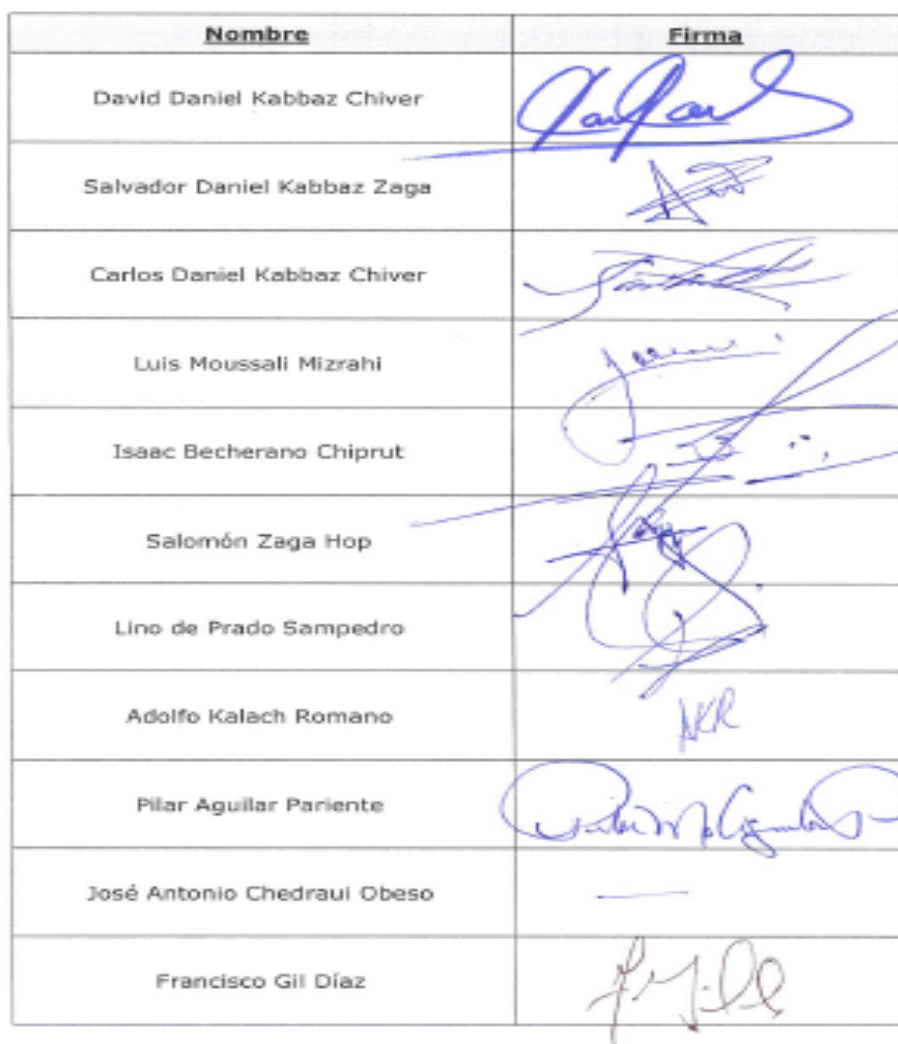 Nombre Firma
David Daniel Kabbaz Chiver
Salvador Daniel Kabbaz Zaga
Carlos Daniel Kabbaz Chiver
Luis Moussali Mizrahi
Isaac Becherano Chiprut
Salomón Zaga Hop
Lino de Prado Sampedro
Adolfo Kalach Romano AKR
Pilar Aguilar Pariente
José Antonio Chedraui Obeso —
Francisco Gil Díaz